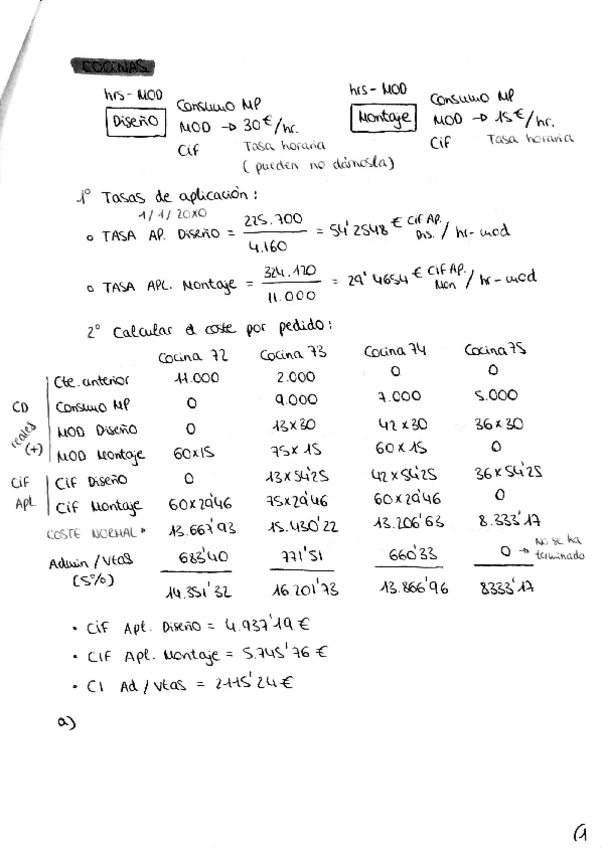 COCINAS
hrs-MOD
Diseño
Consumo MP
MOD → 30€/hr.
Cif Tasa horaria
(pueden no dárnosla)
hrs-MOD
Montaje
Consumo MP
MOD → 15€/hr.
Cif Tasa horaria
1º Tasas de aplicación:
1/1/20X0
o TASA AP. Diseño = 225.700 / 4.160 = 54'2548 € Cif AP. Dis. / hr-mod
o TASA APL. Montaje = 324.120 / 11.000 = 29'4654 € Cif AP. Mon / hr-mod
2º Calcular el coste por pedido:
Cocina 72 Cocina 73 Cocina 74 Cocina 75
CD reales (+)
Cte. anterior 11.000 2.000 0 0
Consumo MP 0 9.000 7.000 5.000
MOD Diseño 0 13x30 42x30 36x30
MOD Montaje 60x15 75x15 60x15 0
Cif Apl.
Cif Diseño 0 13x54'25 42x54'25 36x54'25
Cif Montaje 60x29'46 75x29'46 60x29'46 0
COSTE NORMAL* 13.667'93 15.430'22 13.206'63 8.333'17
Admin/Vtas (5%) 683'40 771'51 660'33 0 → No se ha terminado
14.351'32 16.201'73 13.866'96 8333'17
• Cif Apl. Diseño = 4.937'19 €
• Cif Apl. Montaje = 5.745'76 €
• CI Ad/Vtas = 2115'24 €
a)
1